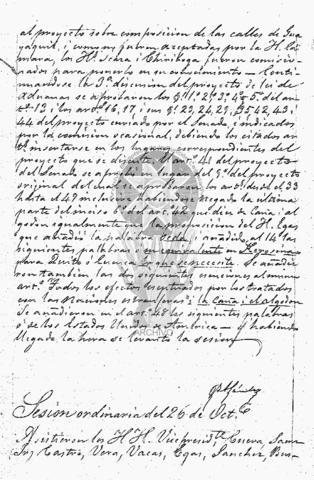 al proyecto sobre composicion de las calles de Gua-
yaquil, i como fueron aceptadas por la H. Cá-
mara, los HH. Scara i Chiriboga fueron comisio-
nados para ponerlo en su conocimiento — Conti-
nuandose la 3ª discusion del proyecto de lei de
aduanas se aprobaron los
13, los artos 16, 17, i sus 22, 23, 29, 35, 42, 43 i
44 del proyecto enviado por el Senado, e indicados
por la comision ocasional, debiendo los citados ar-
insertarse en los lugares correspondientes del
proyecto que se discute. El art. 41 del proyecto
del Senado se aprobó en lugar del 9º del proyecto
original del cual se aprobaron los artos desde el 33
hasta el 47 inclusive habiendose negado la última
parte del inciso 6º del art. 44
algodon igualmente que la proposicion del H. Egas
que añadió la palabra seda, i añadió al 14 las
siguientes palabras
para Quito i Cuenca que se necesite. Se añadie-
ron tambien las dos siguientes esenciones al mismo
art. Todos los efectos eseptuados por los tratados
con las Naciones estranjeras i la Caña i el algodon
Se añadieron en el art. 48 las siguientes palabras
ó de los Estados Unidos de America — y habiendo
llegado la hora se levantó la sesion
ARCHIVO
Sesion ordinaria del 26 de Oct.e
Asistieron los HH. Vicepresid.te Cueva,
Castro, Vera, Vacas, Egas, Sanchez, Bus-